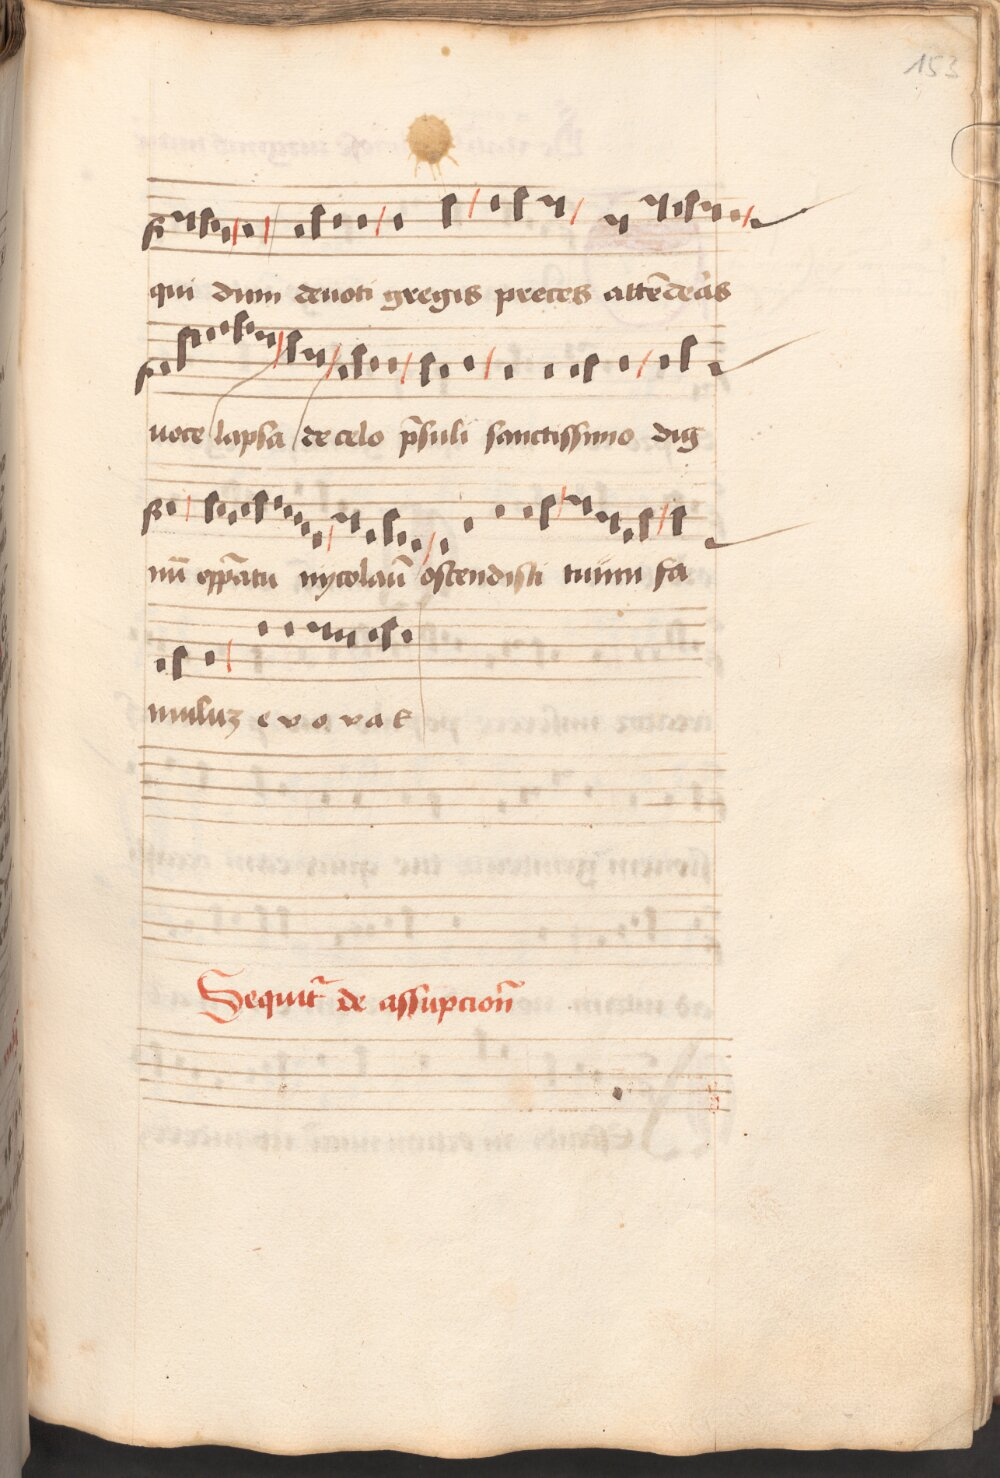 153
qui dum deuoti gregis preces attēdēs
uoce lapsa de celo p̄suli sanctissimo dig
nū opp̄atu nycolaū ostendisti tuum fa
muluʒ e v o v a e
Sequit̄ de assupcioñ